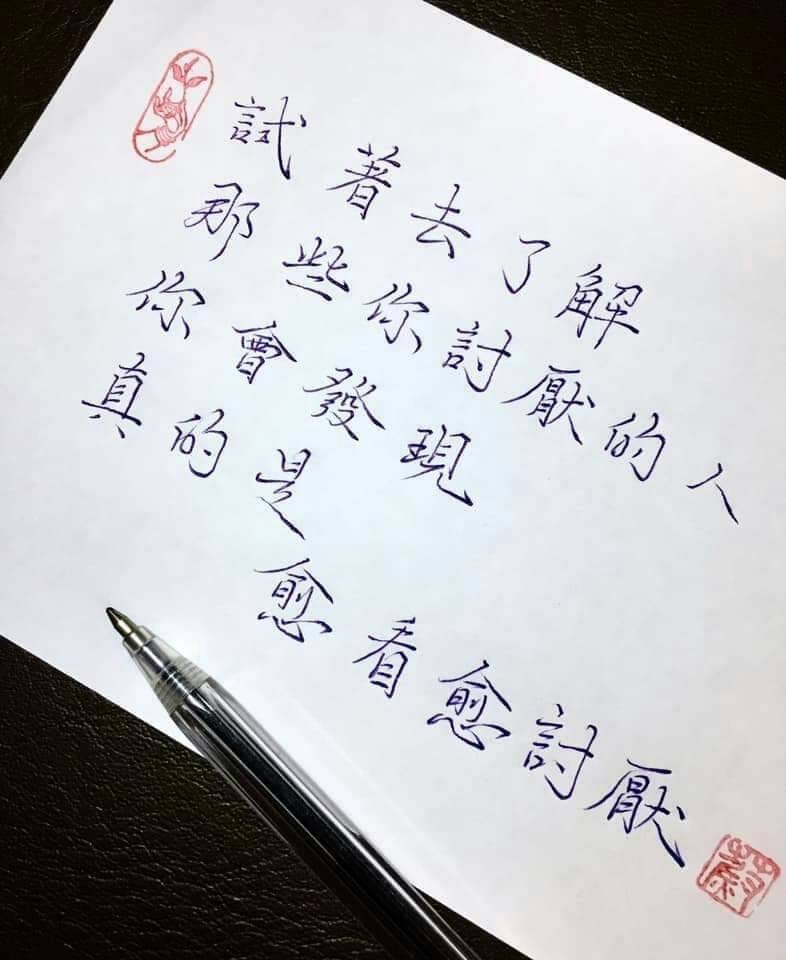 試著去了解
那些你討厭的人
你會發現
真的是
愈看愈討厭